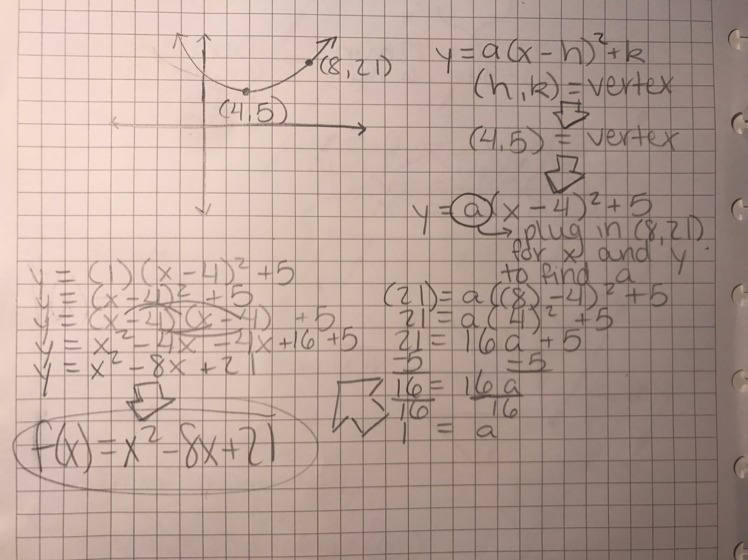 (8,21)
(4,5)
y = a(x-h)²+k
(h,k) = vertex
(4,5) = vertex
y = a(x-4)²+5
plug in (8,21)
for x and y
to find a
(21) = a((8)-4)²+5
21 = a(4)²+5
21 = 16a+5
-5 -5
16 = 16a
16 16
1 = a
y = (1)(x-4)²+5
y = (x-4)²+5
y = (x-4)(x-4)+5
y = x²-4x-4x+16+5
y = x²-8x+21
f(x)=x²-8x+21